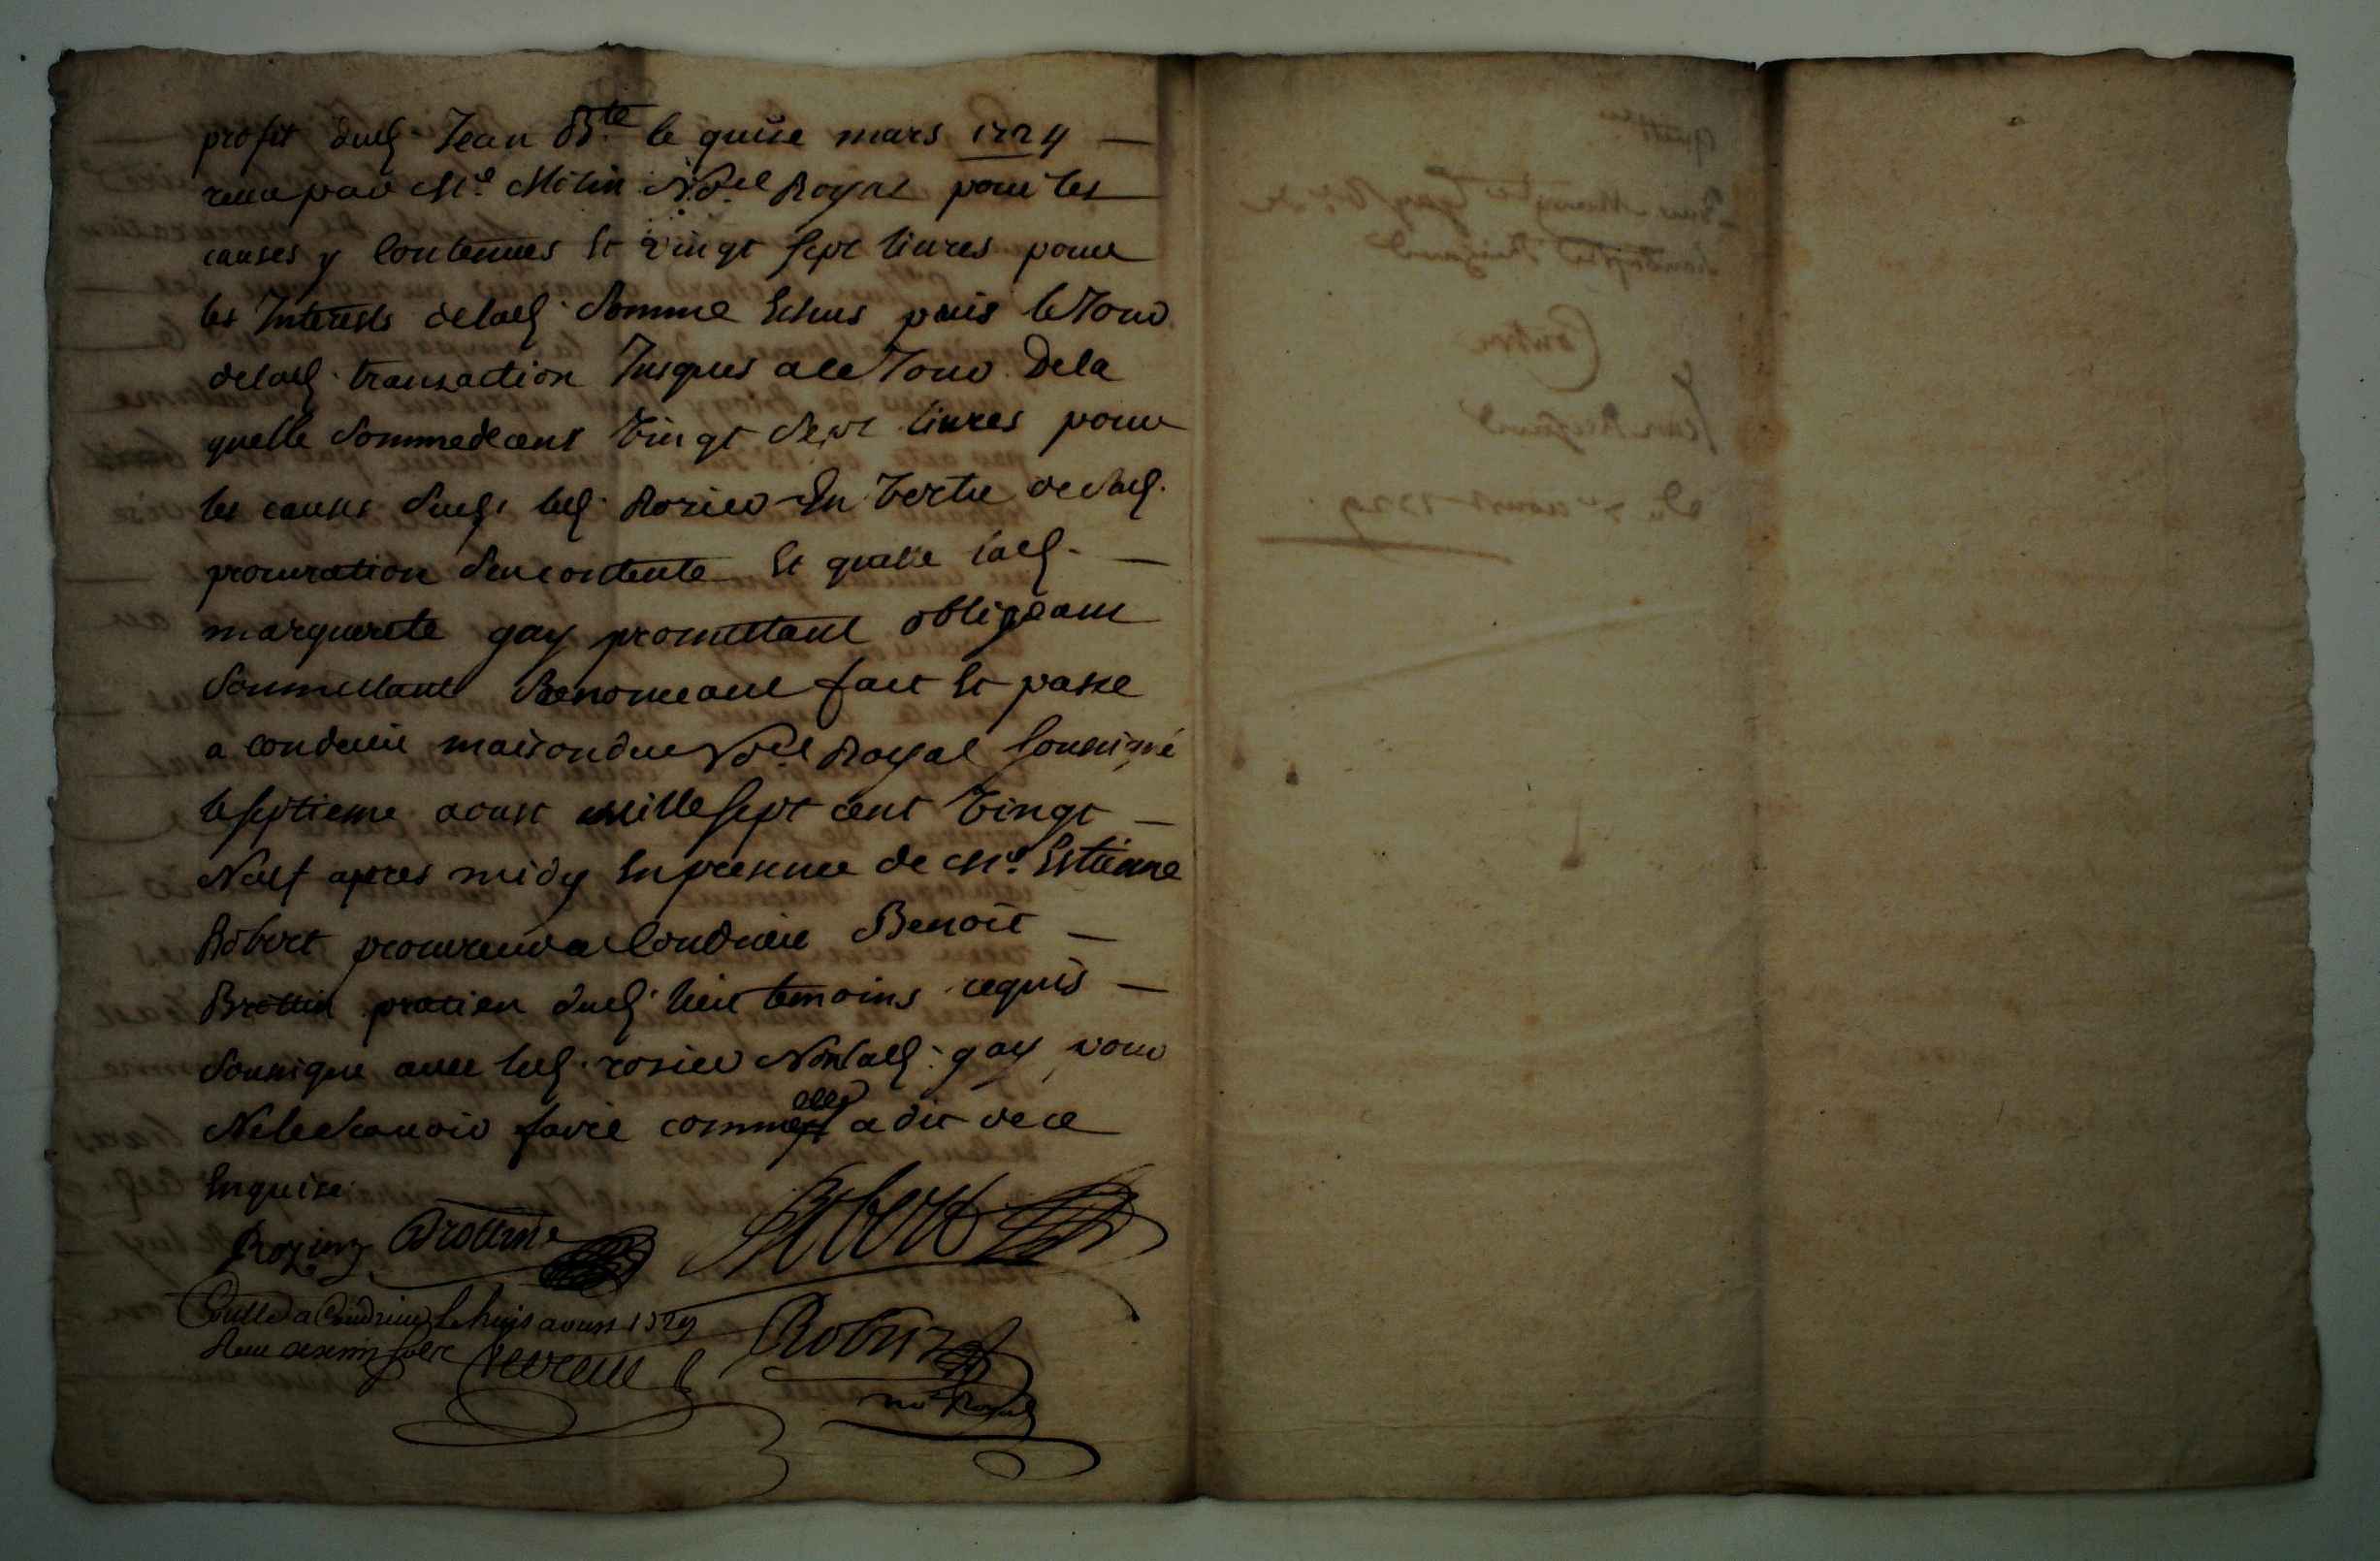 profit dud. Jean Bte le quise mars 1724
receu par Me Molin No.re Royal pour les
causes y contenues Et vingt sept livres pour
les Interests delad. somme Echus puis le Jour
delad. transaction Jusques a ce Jour Dela
quelle somme de cent vingt sept livres pour
les causes sud. led. Rozier En vertu de sad.
procuration sen contente Et quitte lad.
marguerite gay promettant obligeant
soumettant Renonceant fait Et passé
a condrieu maison du No.re Royal soussigné
le septieme aoust mille sept cent vingt
Neuf apres midy En presence de Me. Estienne
Robert procureur a Condrieu Benoit
Brottin praticien dud. lieu temoins requis
soussigne avec led. rosier Non lad. gay pour
Ne le scavoir faire comme elle a dit de ce
Enquise
Rozier Brottin Robert
Conllé a Condrieu le huit aoust 1729
Receu
Robin
no.re Royal
Contre
Jean
Du 7e aoust 1729